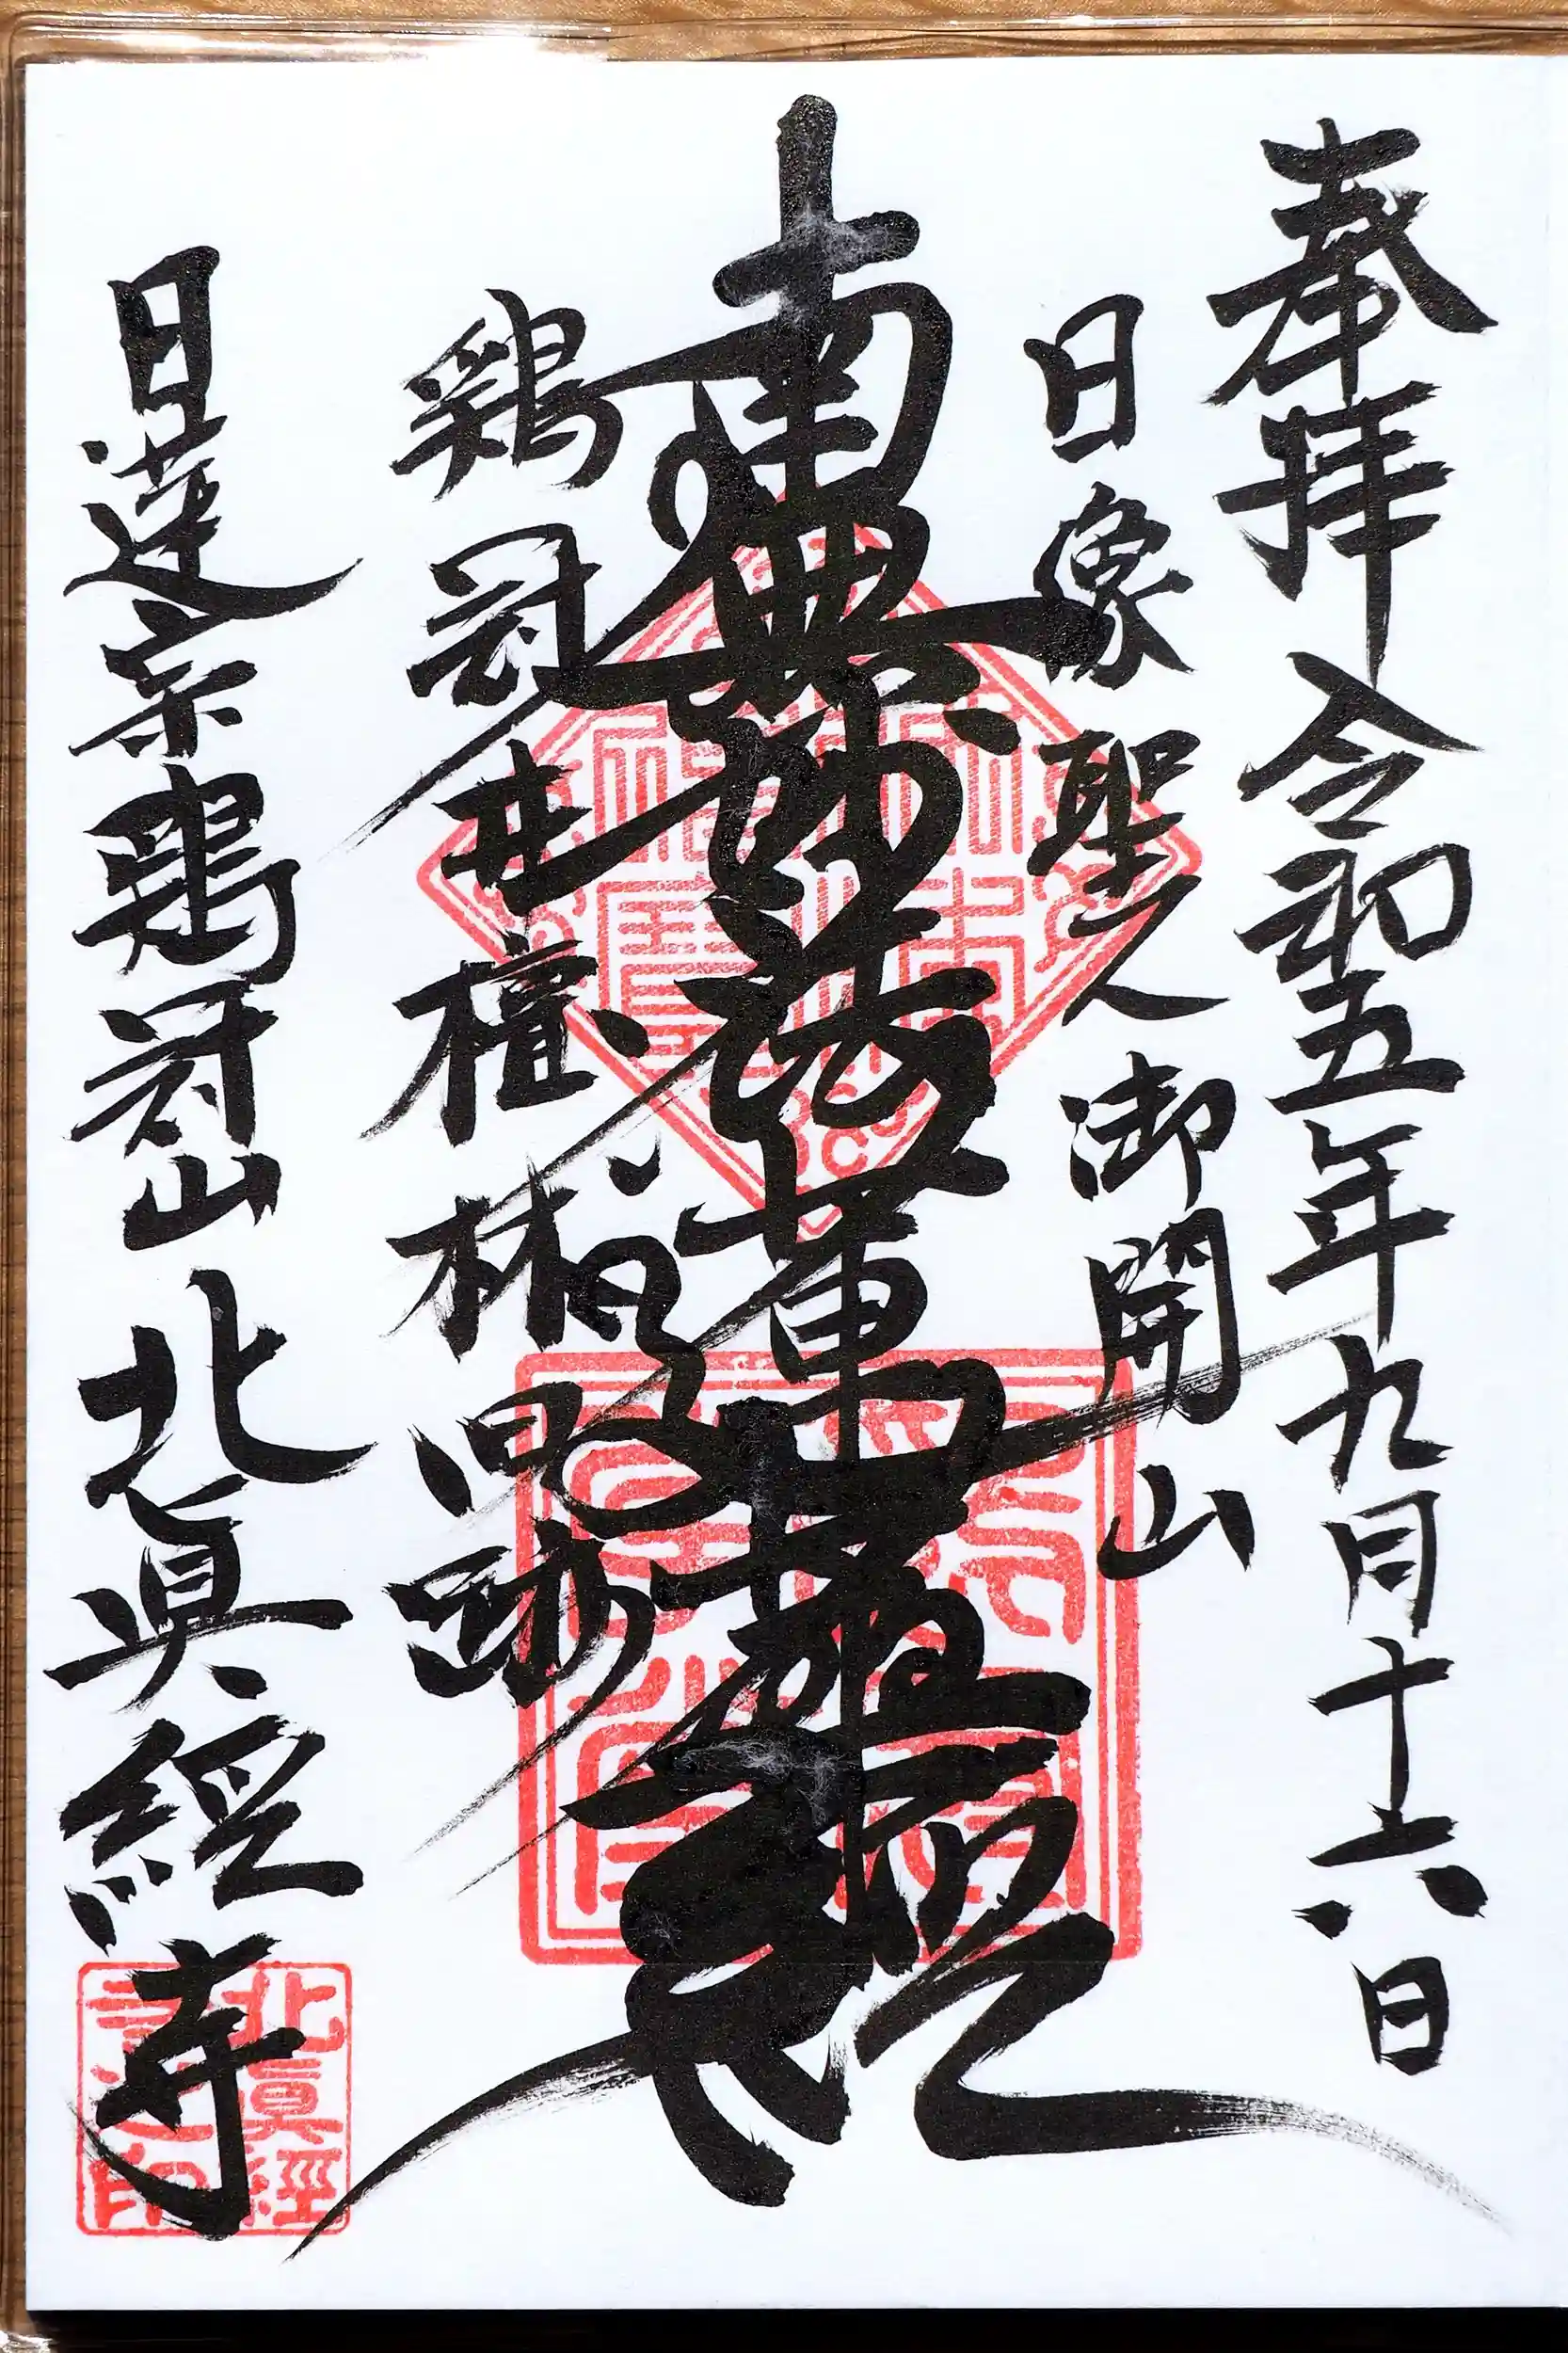 奉拝 令和五年九月十六日
日像聖人御開山
南無妙法蓮華経
鶏冠井檀林旧跡
日蓮宗鶏冠山北眞経寺
北眞經